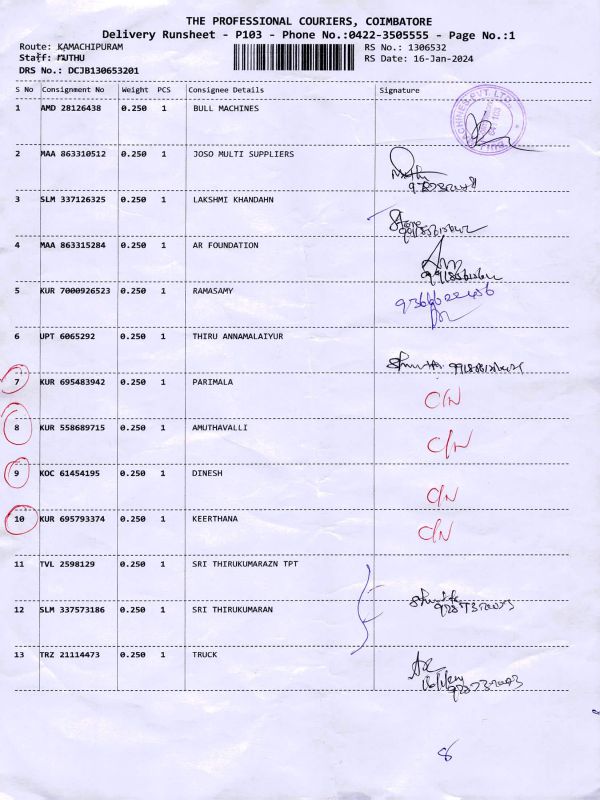 THE PROFESSIONAL COURIERS, COIMBATORE
Delivery Runsheet - P103 - Phone No.:0422-3505555 - Page No.:1
Route: KAMACHIPURAM RS No.: 1306532
Staff: MUTHU RS Date: 16-Jan-2024
DRS No.: DCJB130653201
S No Consignment No Weight PCS Consignee Details Signature
1 AMD 28126438 0.250 1 BULL MACHINES
2 MAA 863310512 0.250 1 JOSO MULTI SUPPLIERS
3 SLM 337126325 0.250 1 LAKSHMI KHANDAHN
4 MAA 863315284 0.250 1 AR FOUNDATION
5 KUR 7000926523 0.250 1 RAMASAMY
6 UPT 6065292 0.250 1 THIRU ANNAMALAIYUR
7 KUR 695483942 0.250 1 PARIMALA C/N
8 KUR 558689715 0.250 1 AMUTHAVALLI C/N
9 KOC 61454195 0.250 1 DINESH C/N
10 KUR 695793374 0.250 1 KEERTHANA C/N
11 TVL 2598129 0.250 1 SRI THIRUKUMARAZN TPT
12 SLM 337573186 0.250 1 SRI THIRUKUMARAN
13 TRZ 21114473 0.250 1 TRUCK
8